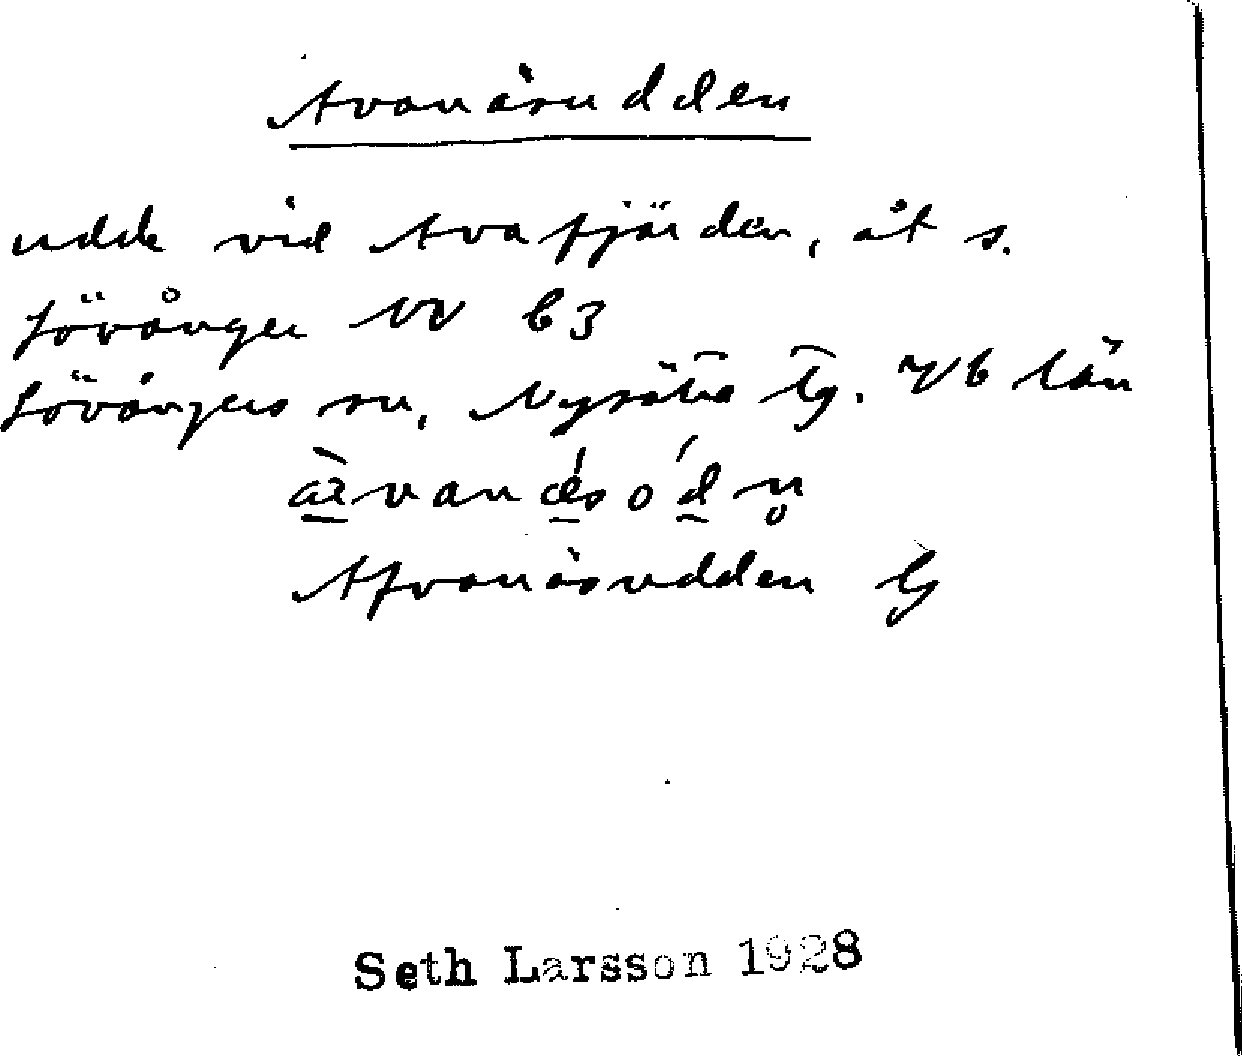 Avanäsudden
udde vid Avafjärden, åt s.
Lövånger NV b3
Lövångers sn, Nysätra tg. Vb län
Afvanäsudden
Seth Larsson 1928